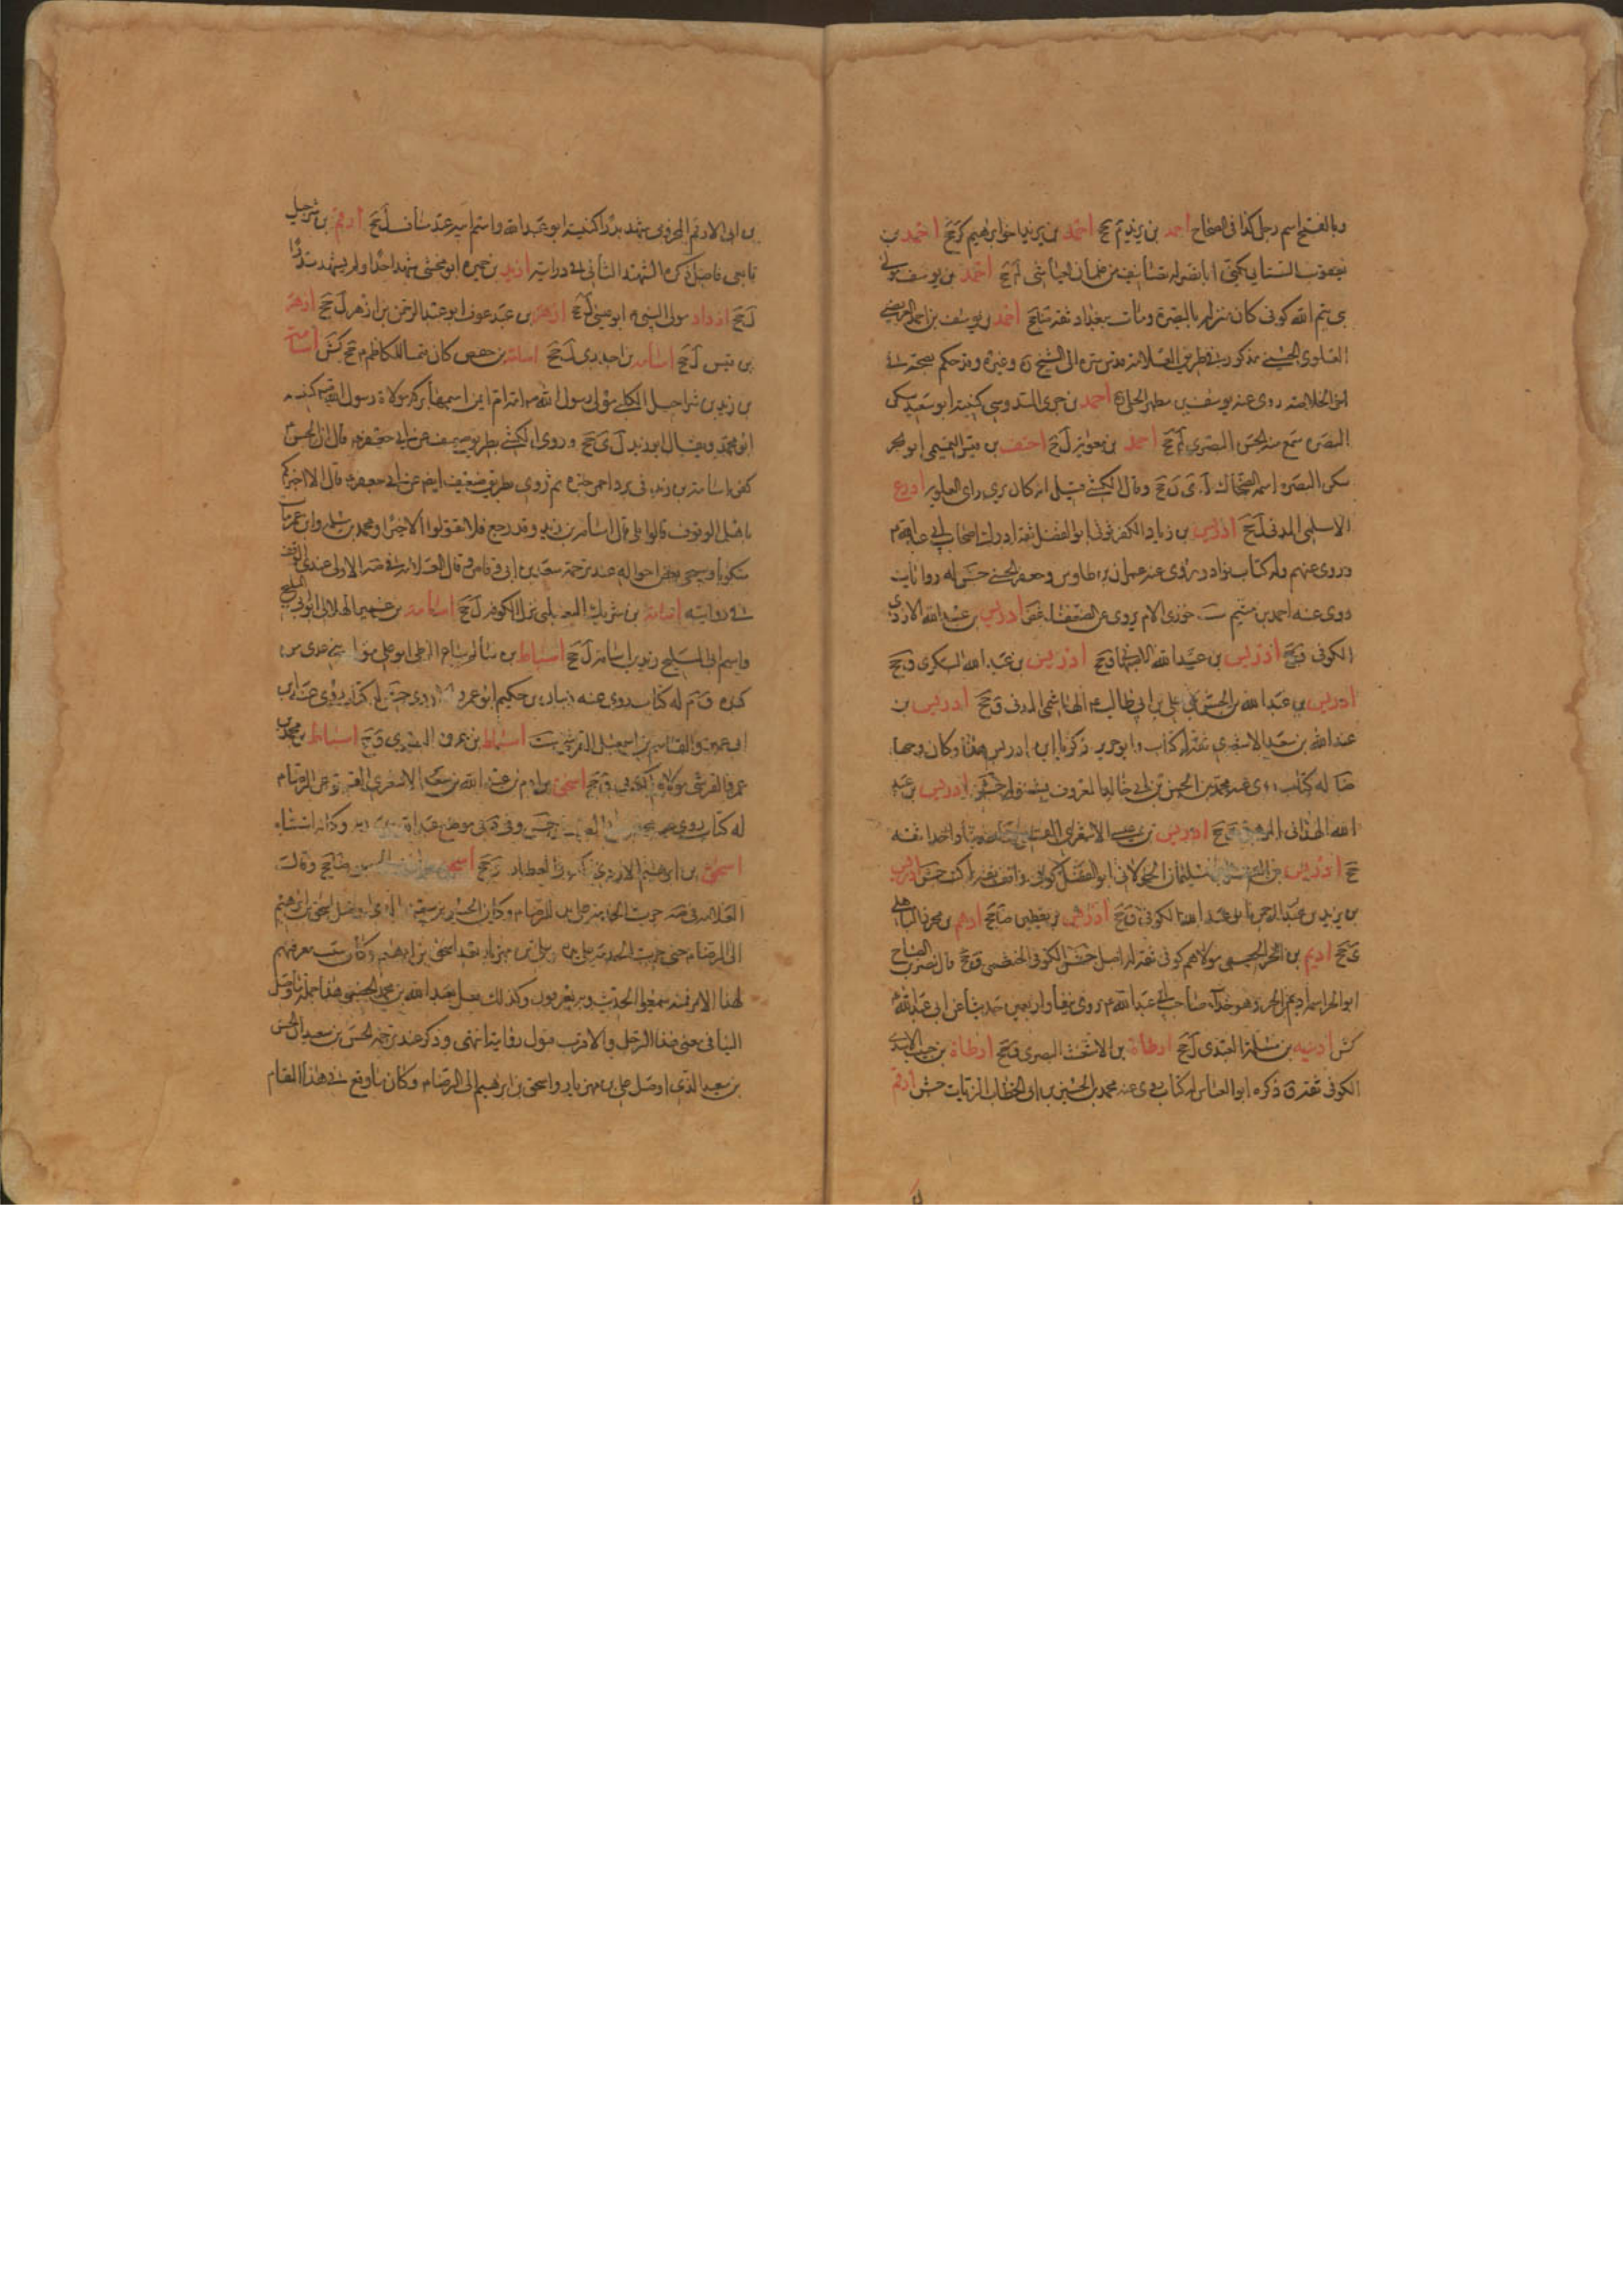 وبالفتح اسم رجل كذا في الصحاح احمد بن يزيد يم جخ احمد بن يزيد يا خو ابرهيم كر جخ احمد بن
يعقوب السنائي يكنى ابا نصر له تصانيف من غلمان العياشي لم جخ احمد بن يوسف مولى
بني تيم الله كوفي كان منزله بالبصرة ومات ببغداد ثقة ضا جخ احمد بن يوسف بن احمد العريضي
العلوي الحسيني مذكور في طريق العلامة قدس سره الى الشيخ ره وغيره وقد حكم بصحته في
اخر الخلاصة روى عنه يوسف بن مطهر الحلي احمد بن جري السدوسي كنيته ابو سعيد سكن
البصرة سمع منه الحسن البصري ل جخ احمد بن معوية ل جخ احنف بن قيس التميمي ابو بحر
سكن البصرة اسمه الضحاك ل ى ن جخ وقال الكشي قيل انه كان يرى راى العلوية ادرع
الاسلمي المدني ل جخ ادريس بن زياد الكفرثوثي ابو الفضل ثقة ادرك اصحاب ابي عبد الله م
وروى عنهم وله كتاب نوادر روى عنه عمران بن طاوس وجعفر الحسني جش له روايات
روى عنه احمد بن ميثم ست خوزي الام يروي عن الضعفاء غض ادريس بن عبد الله الازدي
الكوفي ق جخ ادريس بن عبد الله الاصفهاني ق جخ ادريس بن عبد الله البكري ق جخ
ادريس بن عبد الله بن الحسن بن علي بن ابي طالب م الهاشمي المدني ق جخ ادريس بن
عبد الله بن سعد الاشعري ثقة له كتاب وابو جرير زكريا ابن ادريس هذا وكان وجها
ضا له كتاب روى عنه محمد بن الحسن بن ابي خالد المعروف بشنولة جش ادريس بن عبد
الله الهمداني المرهبي ق جخ ادريس بن عيسى الاشعري القمي دخل عليه وروى عنه حديثا واحدا ثقة
جخ ادريس بن الفضل بن سليمان الخولاني ابو الفضل كوفي واقف ثقة له كتب جش ادريس
بن يزيد بن عبد الرحمن ابو عبد الله الكوفي ق جخ ادريس بن يقطين ضا جخ ادهم بن محرز الباهلي
ى جخ اديم بن الحر الجعفي مولاهم كوفي ثقة له اصل جش الكوفي الخثعمي ق جخ قال نصر بن الصباح
ابو الحر اسمه اديم بن الحر وهو حذاء صاحب ابي عبد الله م روى نيفا واربعين حديثا عن ابي عبد الله م
كش اذينه بن سلمة العبدي ل جخ ارطاة بن الاشعث البصري ق جخ ارطاة بن حبيب الاسدي
الكوفي ثقة ق ذكره ابو العباس له كتاب روى عنه محمد بن الحسين بن ابي الخطاب الزيات جش ارقم
بن ابي الارقم المخزومي شهد بدرا كنيته ابو عبد الله واسم ابيه عبد مناف ل جخ ارقم بن شرحبيل
تابعي فاضل ذكره الشهيد الثاني في درايته ازيد بن حميرة ابو مخشي شهد احدا ولم يشهد بدرا
ل جخ ازداد مولى النبي م ابو عيسى ل جخ ازهر بن عبد عوف ابو عبد الرحمن بن ازهر ل جخ ازهر
بن قيس ل جخ اسامه بن اخدري ل جخ اسامه بن حفص كان قيما للكاظم م جخ كش اسامة
بن زيد بن شراحيل الكلبي مولى رسول الله ص امه ام ايمن اسمها بركة مولاة رسول الله ص كنيته
ابو محمد ويقال ابو زيد ل ى جخ وروى الكشي بطريق ضعيف عن ابي جعفر م قال ان الحسن م
كفن اسامة بن زيد في برد احمر حبرة ثم روى بطريق ضعيف ايضا عن ابي جعفر م قال الا اخبركم
باهل الوقوف قالوا بلى قال اسامه بن زيد وقد رجع فلا تقولوا الا خيرا ومحمد بن سلمة وابن عمر مات
منكوبا وسيجي بعض احواله عند ترجمة سعد بن ابي وقاص وقال العلامة في صه الاولى عندي التوقف
في روايته اسامة بن شريك الثعلبي نزل الكوفه ل جخ اسامة بن عمير الهذلي ابو ابي المليح
واسم ابي المليح زيد بن اسامه ل جخ اسباط بن سالم بياع الزطي ابو علي مولى بني عدي من
كنده ق م له كتاب روى عنه
ابي عمير والقاسم بن اسمعيل القرشي ست اسباط بن عروة البصري ق جخ اسباط بن محمد بن
عمرو القرشي مولاهم كوفي ق جخ اسحق بن ادم بن عبد الله بن سعد الاشعري القمي روى عن الرضا م
له كتاب يرويه
اسحق بن ابرهيم الازدي كوفي العطار ق جخ اسحق بن ابرهيم الحضيني ضا جخ وقال
العلامه في صه جرت الخدمة على يده للرضا م وكان الحسين بن سعيد الذي اوصل اسحق بن ابرهيم
الى الرضا م حتى جرت الخدمة على يده وعلي بن مهزيار بعد اسحق بن ابرهيم وكان سبب معرفتهم
لهذا الامر فمنه سمعوا الحديث وبه يعرفون وكذلك فعل بعبد الله بن محمد الحضيني هذا جملة ما وصل
الينا في معنى هذا الرجل والاقرب قبول روايته انتهى وذكر عند ترجمة الحسن بن سعيد ان الحسن
بن سعيد الذي اوصل علي بن مهزيار واسحق بن ابرهيم الى الرضا م وكان ما وقع في هذا المقام